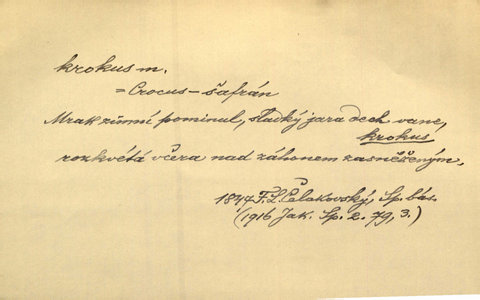 krokus m.
= Crocus – šafrán
Mrak zimní pominul, sladký jara dech vane,
krokus
rozkvétá včera nad záhonem zasněženým,
1847 F. L. Čelakovský, Sp. bás.
(1916 Jak. Sp. 2. 79, 3.)